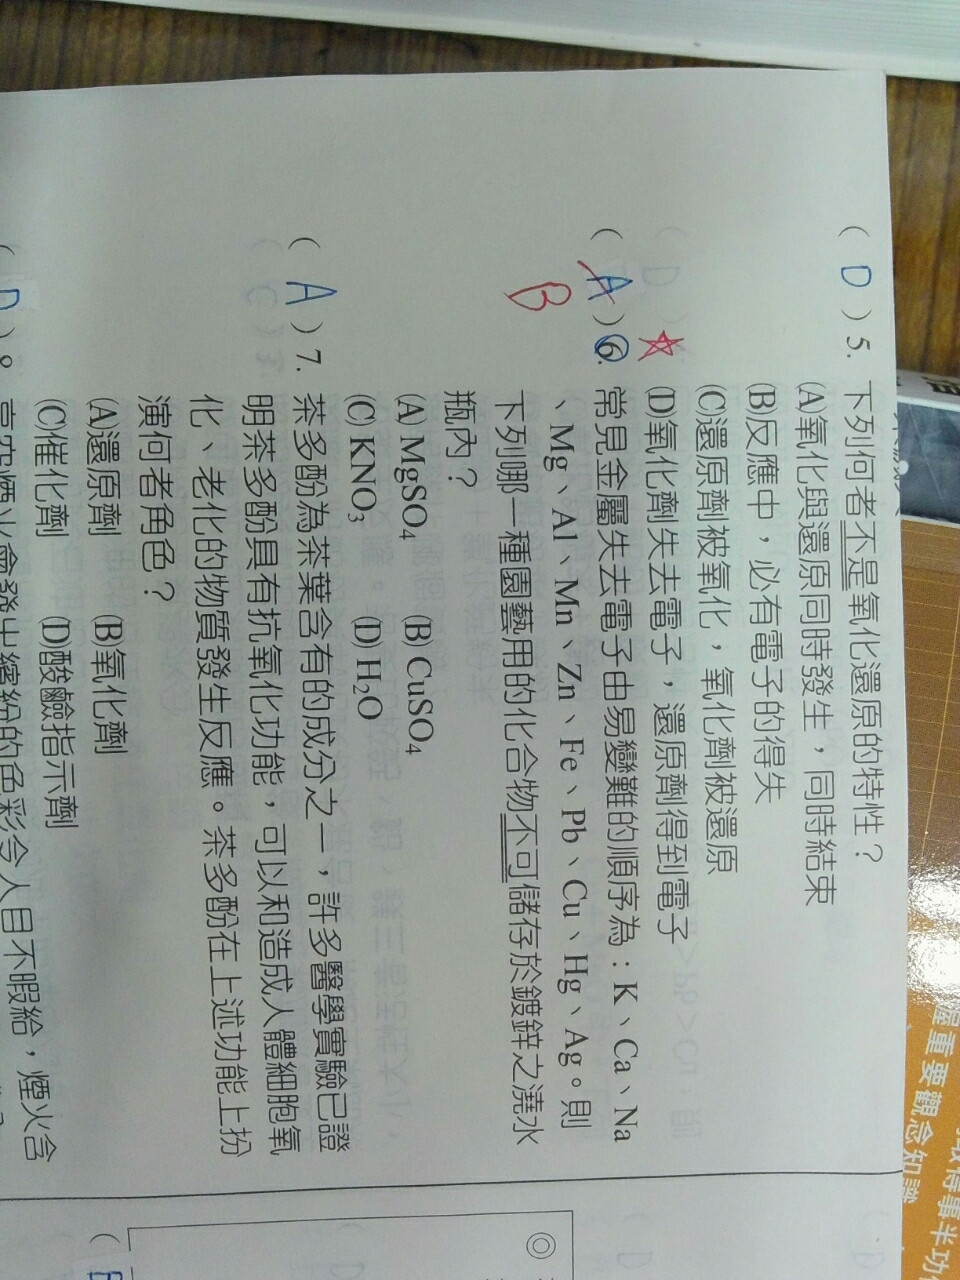 ( D ) 5. 下列何者不是氧化還原的特性？
(A)氧化與還原同時發生，同時結束
(B)反應中，必有電子的得失
(C)還原劑被氧化，氧化劑被還原
(D)氧化劑失去電子，還原劑得到電子
( A ) 6. 常見金屬失去電子由易變難的順序為：K、Ca、Na
B
、Mg、Al、Mn、Zn、Fe、Pb、Cu、Hg、Ag。則
下列哪一種園藝用的化合物不可儲存於鍍鋅之澆水
瓶內？
(A) MgSO₄ (B) CuSO₄
(C) KNO₃ (D) H₂O
( A ) 7. 茶多酚為茶葉含有的成分之一，許多醫學實驗已證
明茶多酚具有抗氧化功能，可以和造成人體細胞氧
化、老化的物質發生反應。茶多酚在上述功能上扮
演何者角色？
(A)還原劑 (B)氧化劑
(C)催化劑 (D)酸鹼指示劑
( D ) 8. 高空煙火會發出繽紛的色彩令人目不暇給，煙火含
握重要觀念知識
取得事半功